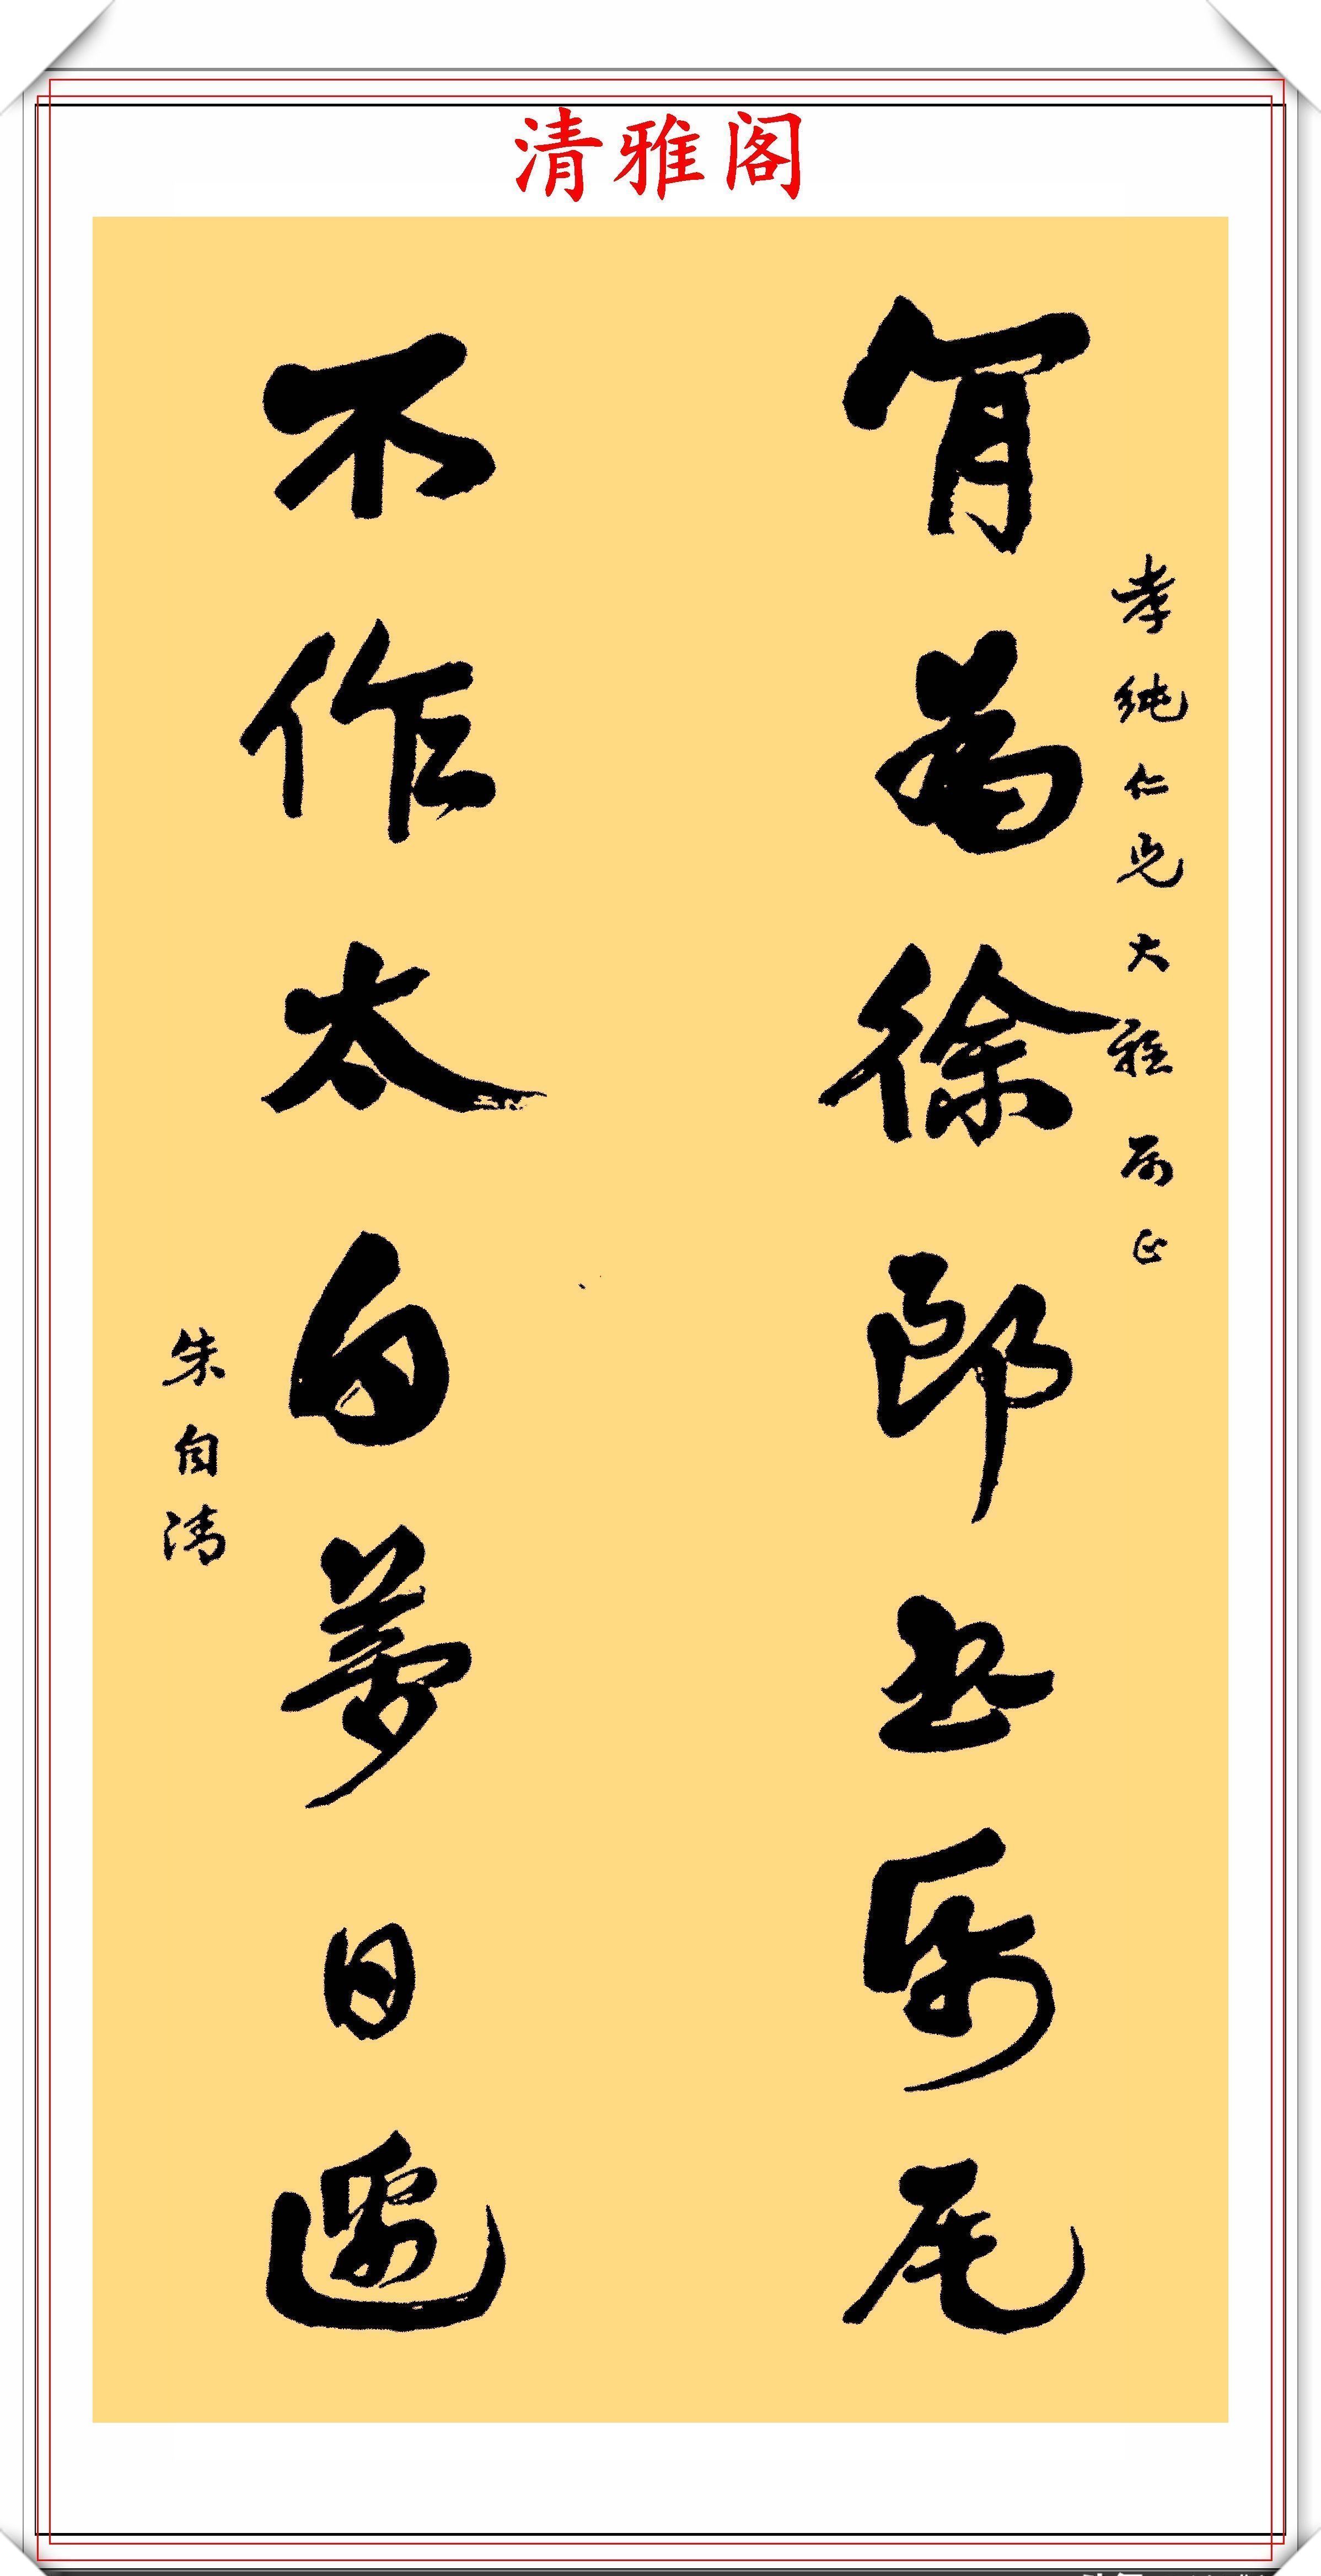 清雅阁
孝純仁兄大雅属正
肎為徐郎書帋尾
不作太白夢日邊
朱自清